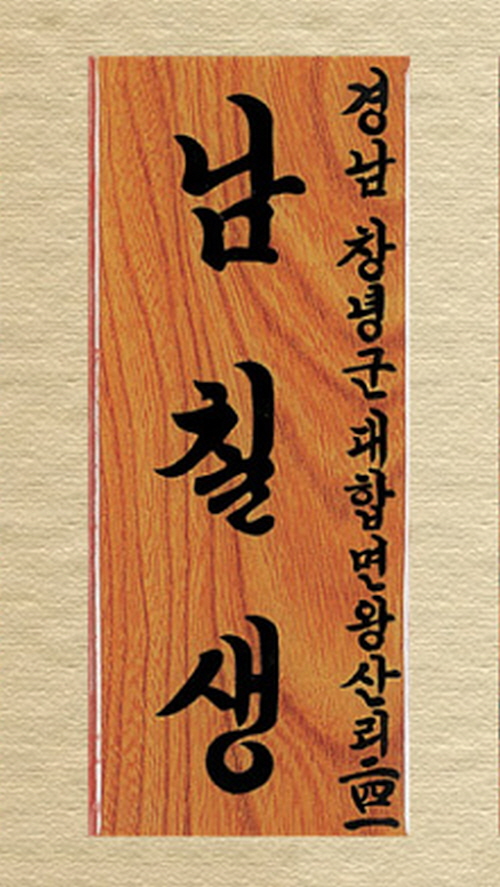 경남 창녕군대합면왕산리二四一
남칠생